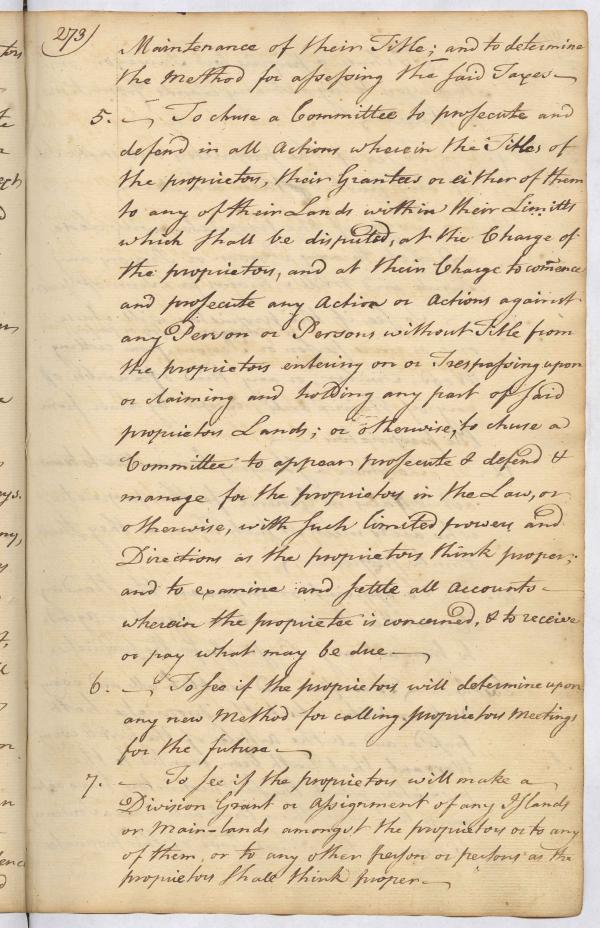 273
Maintenance of their Title; and to determine
the Method for assessing the said Taxes—
5. — To chuse a Committee to prosecute and
defend in all Actions wherein the Titles of
the proprietors, their Grantees or either of them
to any of their Lands within their Limitts
which shall be disputed, at the Charge of
the proprietors, and at their Charge to comence
and prosecute any Action or Actions against
any Person or Persons without Title from
the proprietors entering on or Trespassing upon
or claiming and holding any part of said
proprietors Lands; or otherwise; to chuse a
Committee to appear prosecute & defend &
manage for the proprietors in the Law, or
otherwise, with such limitted powers and
Directions as the proprietors think proper;
and to examine and settle all accounts—
wherein the proprietee is concerned, & to receive
or pay what may be due—
6. — To see if the proprietors will determine upon
any new Method for calling proprietors Meetings
for the future—
7. — To see if the proprietors will make a
Division Grant or Assignment of any Islands
or Main-lands amongst the proprietors or to any
of them, or to any other person or persons as the
proprietors shall think proper—